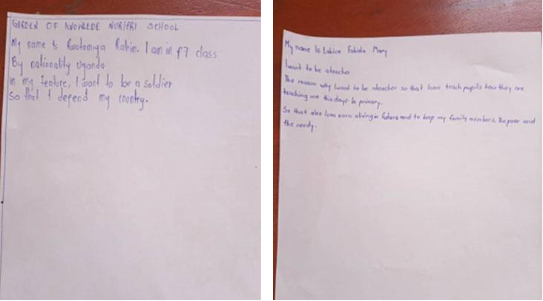 GARDEN OF KNOWLEDE NUR/PRI SCHOOL
My name is Rabie. I am in p7 class
By nationality Uganda
in my feature, I want to be a soldier
So that I defend my country.
My name is Fabida Mary
I want to be ateacher
The reason why I want to be ateacher so that I can teach pupils how they are
teaching me this days in primary.
So that also I can earn aliving in future and to help my family members, the poor and
the needy.